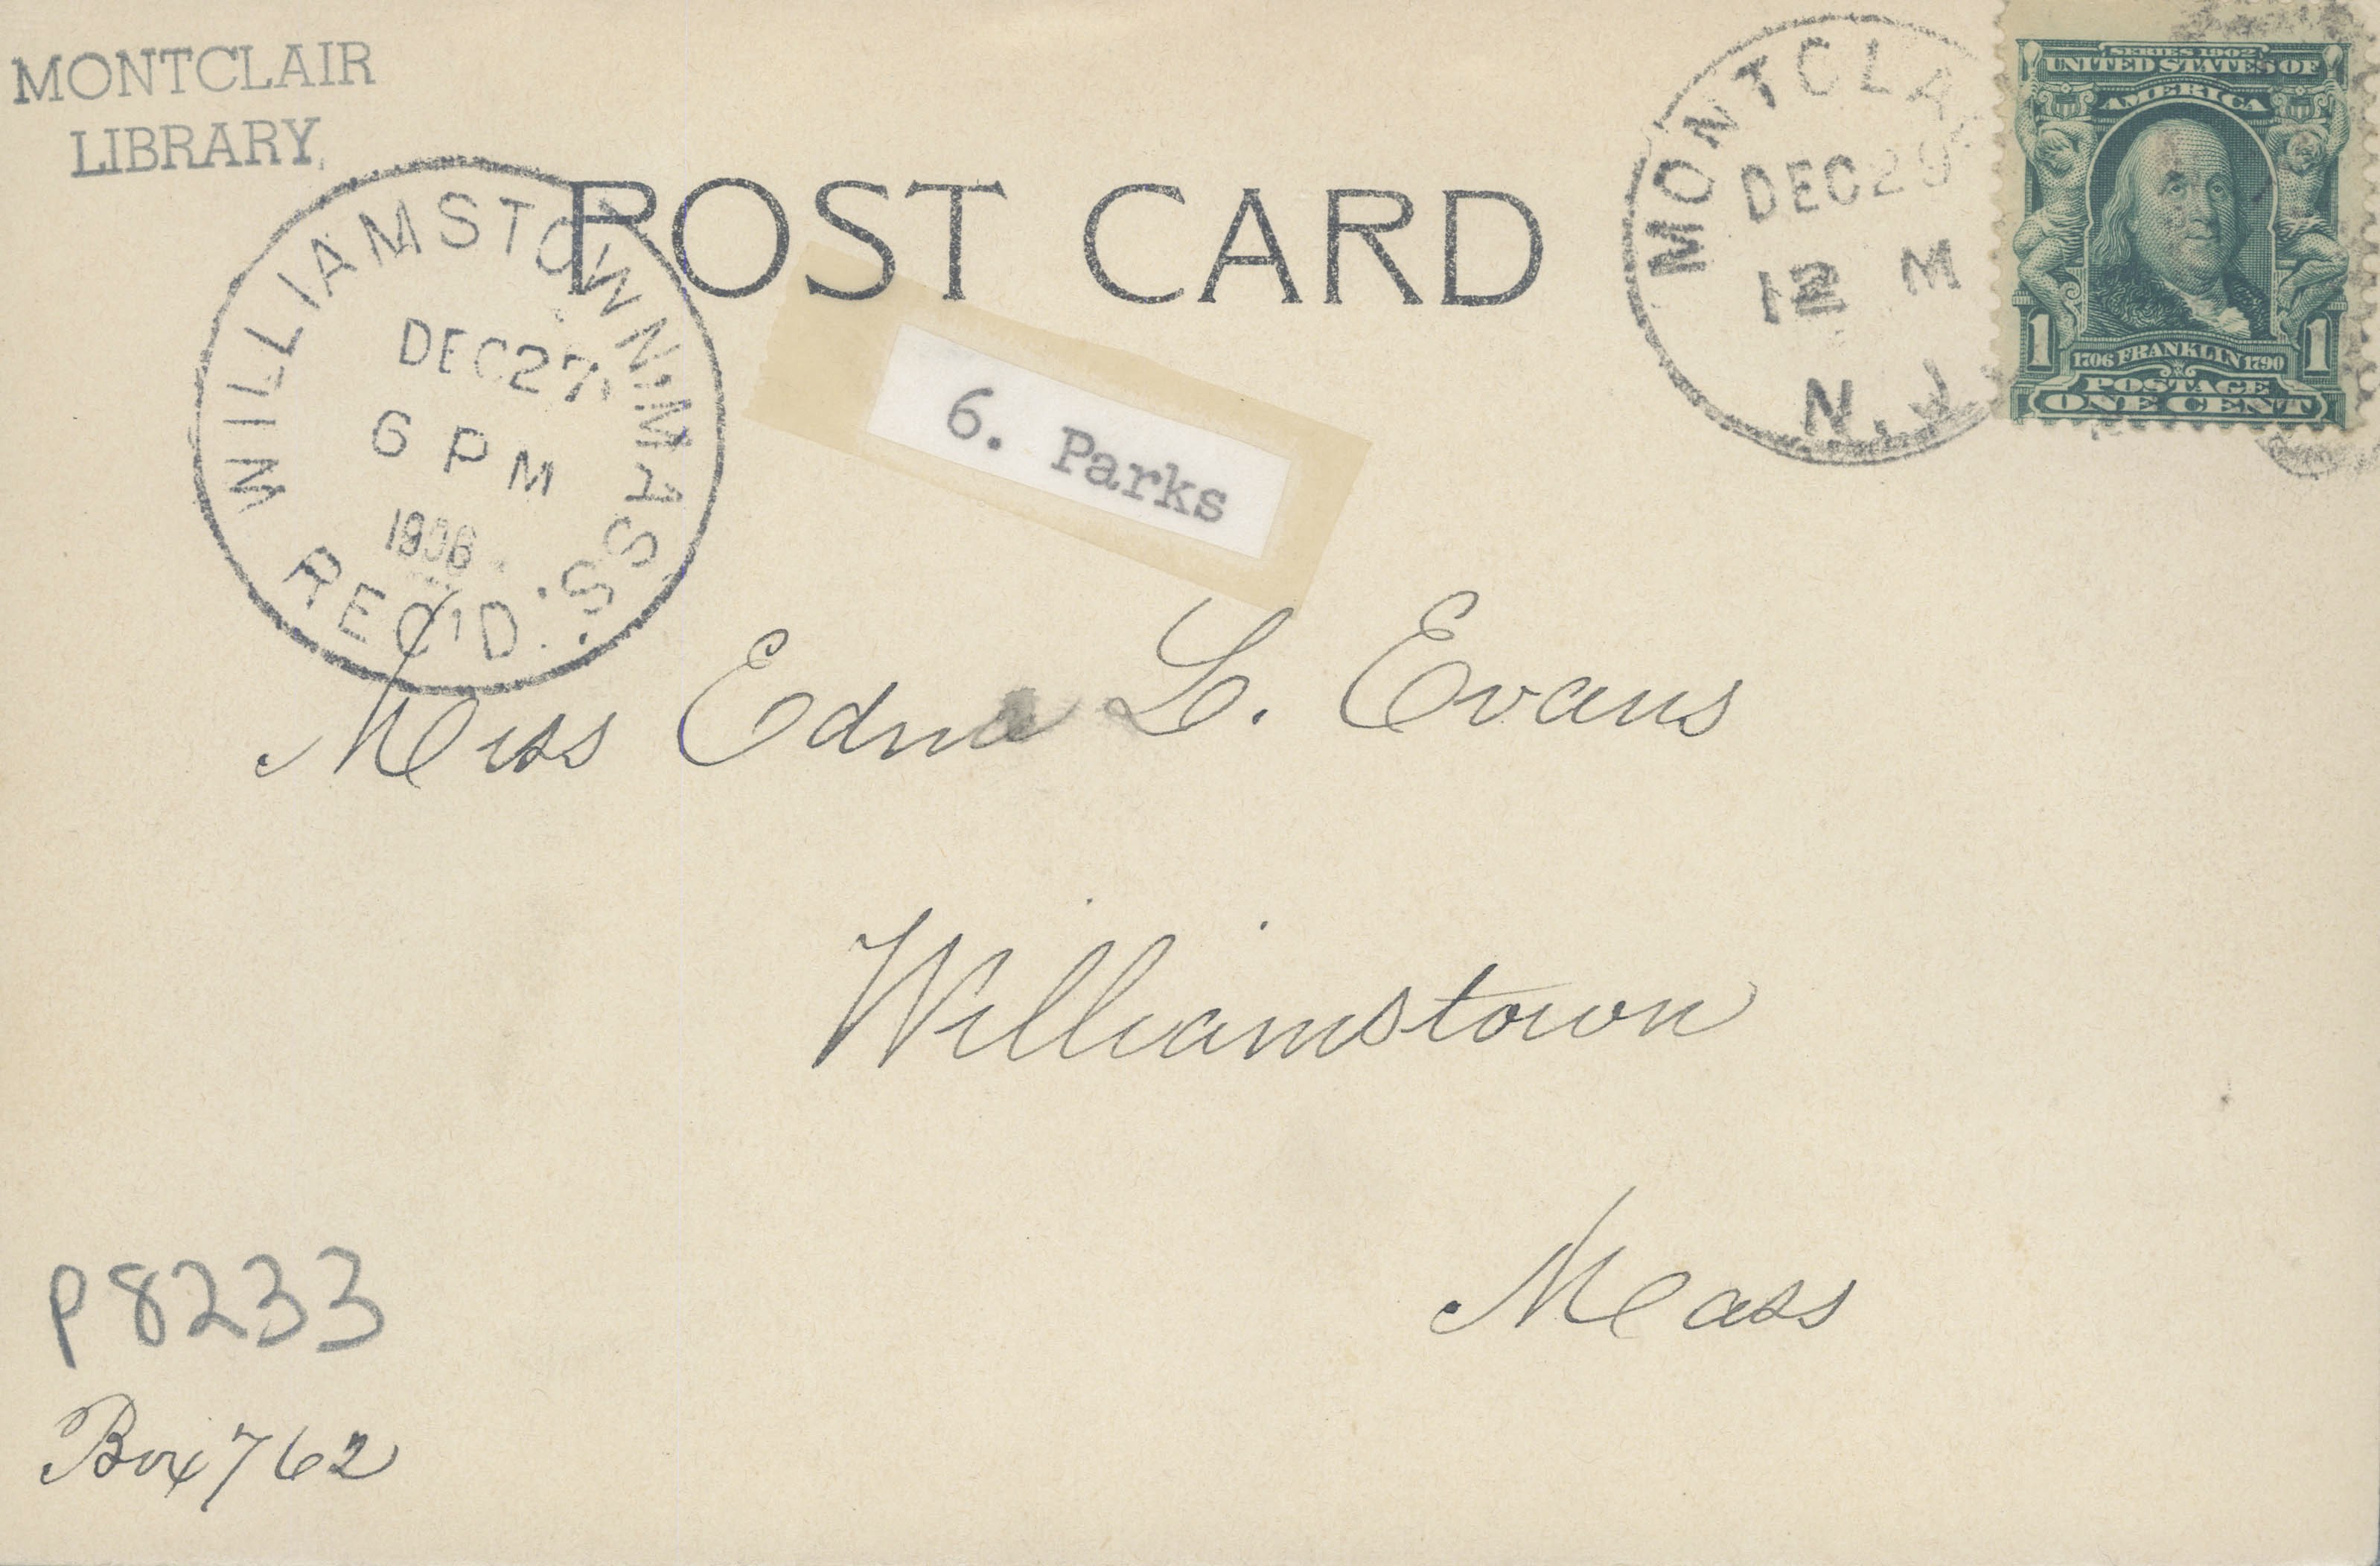 MONTCLAIR
LIBRARY
POST CARD
WILLIAMSTOWN. MASS.
DEC 27
6 PM
REC'D.
MONTCLA
DEC 29
12 M
N.J.
SERIES 1902
UNITED STATES OF
AMERICA
1 1
1706 FRANKLIN 1790
POSTAGE
ONE CENT
6. Parks
Miss Edna L. Evans
Williamstown
Mass
P8233
Box 762